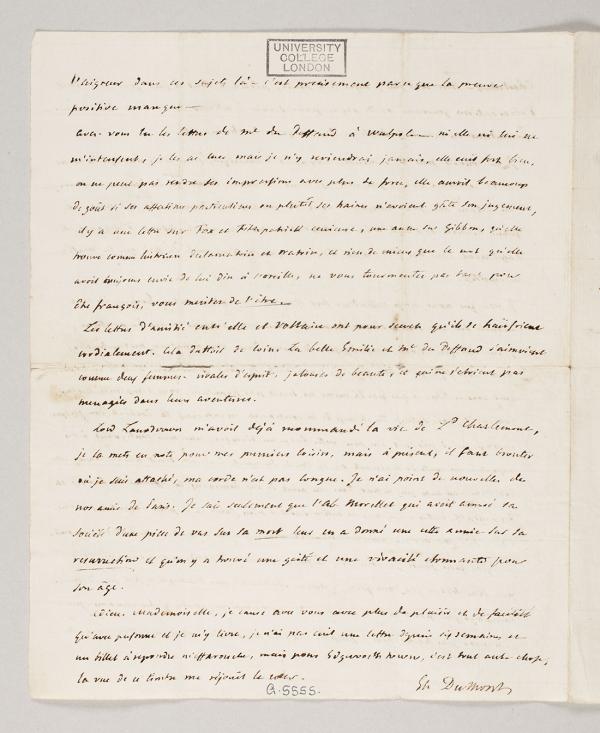 UNIVERSITY
COLLEGE
LONDON
dans ces sujets là - c'est précisément parce que la preuve
positive manque —
avez-vous lu les lettres de Me du Deffand à Walpole — ni elle ni lui ne
m'interessent, je les ai lues mais je n'y reviendrai jamais, elle écrit fort bien,
on ne peut pas rendre ses impressions avec plus de force, elle auroit beaucoup
de goût si ses affections particulieres ou plutôt ses haines n'avoient gâté son jugement,
il y a une lettre sur Fox et Fitzpatrick curieuse, une autre sur Gibbon, qu'elle
trouve comme historien déclamateur et oratoire, et rien de mieux que le mot qu'elle
avoit toujours envie de lui dire à l'oreille, ne vous tourmentez pas tant pour
être françois, vous meritez de l'être —
Les lettres d'amitié entre elle et Voltaire ont pour secret qu'ils se haïssoient
cordialement. Cela dattoit de loin. La belle Emilie et Me du Deffand s'aimoient
comme deux femmes rivales d'esprit, jalouses de beauté, et qui ne s'étoient pas
menagées dans leurs aventures.
Lord Lansdown m'avoit déjà recommandé la vie de Ld Charlemont,
je la mets en note pour mes premiers loisirs, mais à present, il faut brouter
où je suis attaché, ma corde n'est pas longue. Je n'ai point de nouvelles de
nos amis de Paris. Je sais seulement que l'Ab. Morellet qui avoit amusé sa
société d'une piece de vers sur sa mort leur en a donné une cette année sur sa
resurrection et qu'on y a trouvé une gaité et une vivacité étonnantes pour
son âge.
adieu Mademoiselle, je cause avec vous avec plus de plaisir et de facilité
qu'avec personne et je m'y livre, je n'ai pas écrit une lettre depuis six semaines et
un billet à repondre m'effarouche, mais pour Edgeworthtown, c'est tout autre chose,
la vue de ce timbre me réjouit le cœur.
Et. Dumont
G.5555.